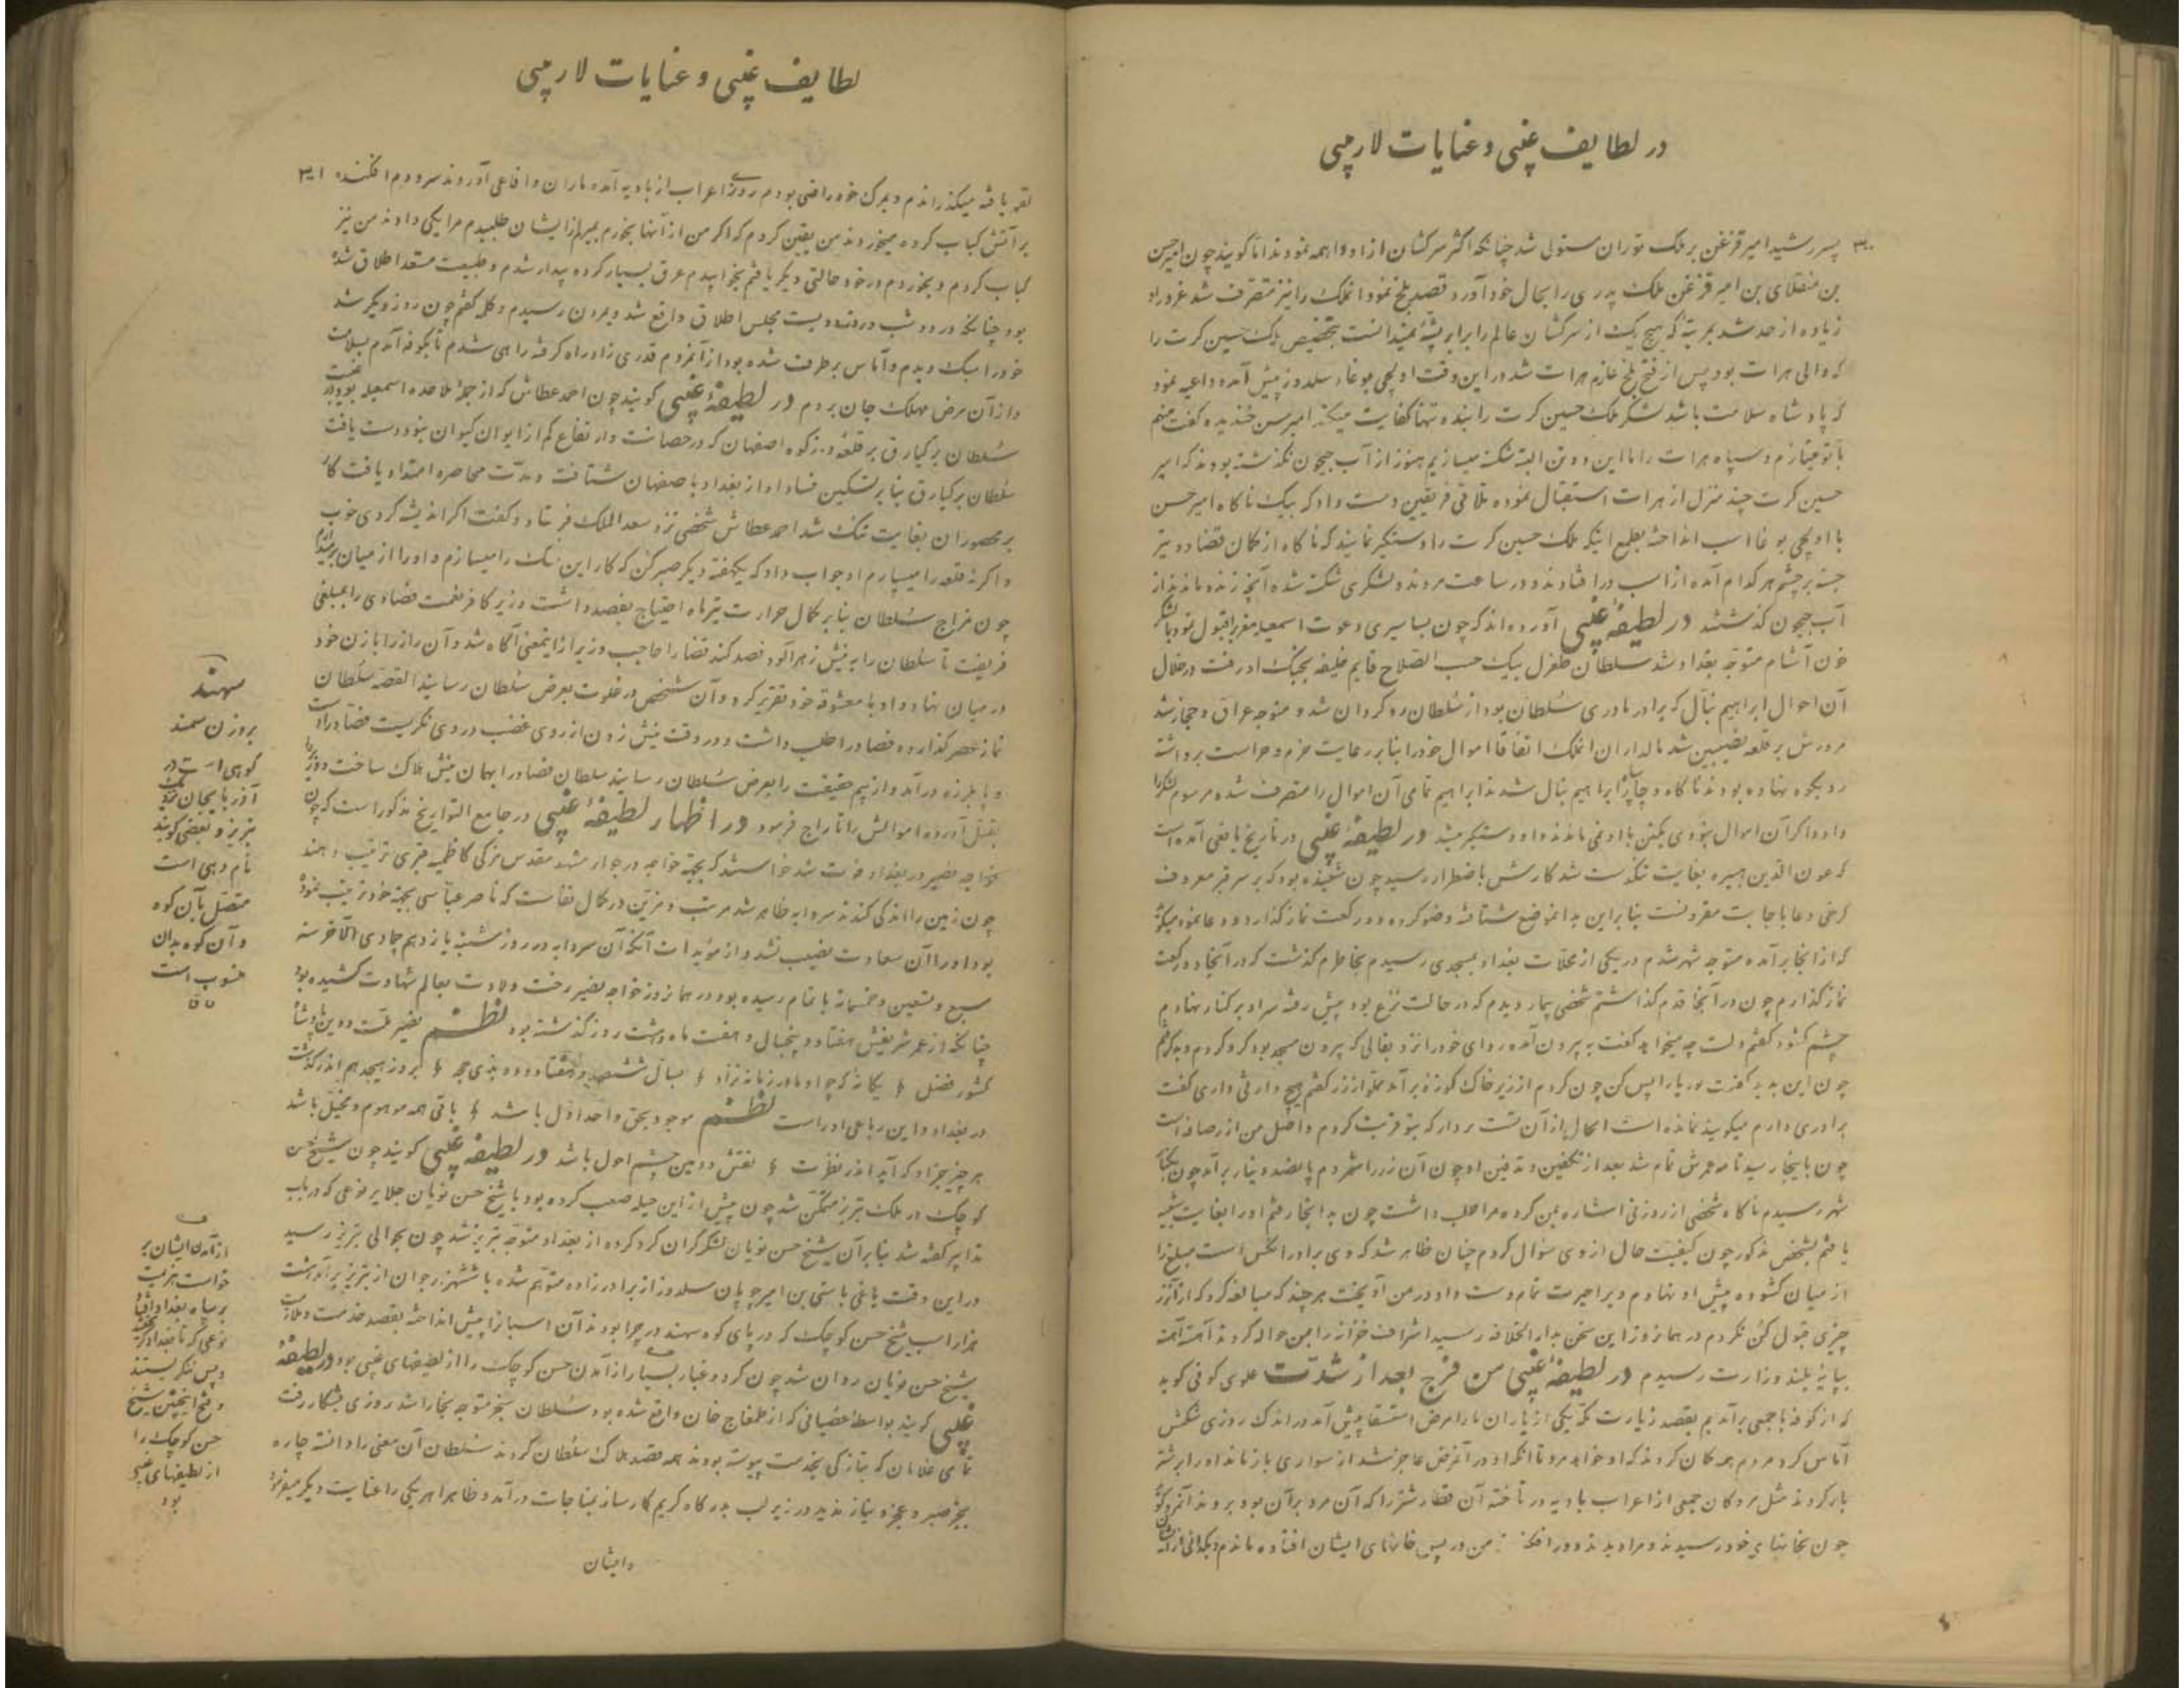 در لطایف غیبی و عنایات لاریبی
۳۰۰ پسر رشید امیر قزغن بر ملک توران مستولی شد چنانکه اکثر سرکشان از او واهمه نمودند اما گویند چون امیرحسن
بن منقلای بن امیر قزغن ملک پدری را بحال خود آورد قصد بلخ نمود آن ملک را نیز متصرف شد غرور او
زیاده از حد شد بمرتبه که هیچ یک از سرکشان عالم را برابر پشه نمیدانست بتخصیص ملک حسین کرت را
که والی هرات بود پس از فتح بلخ عازم هرات شد در این وقت اولجی بوغاء سلدوز پیش آمده داعیه نمود
که پادشاه سلامت باشد لشکر ملک حسین کرت را بنده تنها کفایت میکند امیر حسن خندیده گفت منهم
با تو میتازم و سپاه هرات را ما این دو تن البته شکسته میسازیم هنوز از آب جیحون نگذشته بودند که امیر
حسین کرت چند منزل از هرات استقبال نموده تلاقی فریقین دست داد که بیک ناگاه امیر حسن
با اولجی بوغا اسب انداخته بطمع اینکه ملک حسین کرت را دستگیر نمایند که ناگاه از کمان قضا دو تیر
جسته بر چشم هر کدام آمده از اسب در افتادند و در ساعت مردند و لشکری شکسته شده آنچه زنده ماندند از
آب جیحون گذشتند در لطیفهٔ غیبی آورده‌اند که چون بساسیری دعوت اسمعیلیه مغرب قبول نمود با لشکر
خون آشام متوجه بغداد شد سلطان طغرل بیک حسب الصلاح قایم خلیفه بجنگ او رفت در خلال
آن احوال ابراهیم نیال که برادر مادری سلطان بود از سلطان رو گردان شد و متوجه عراق و حجاز شد
مرورش بر قلعه نصیبین شد مالداران آن ملک اتفاقا اموال خود را بنابر رعایت حزم و حراست برداشته
رو بکوه نهاده بودند ناگاه دچار ابراهیم نیال شدند ابراهیم تمامی آن اموال را متصرف شده مرسوم لشکر را
داد و اگر آن اموال نبودی یمکن با او نمی ماندند و او دستگیر میشد در لطیفهٔ غیبی در تاریخ یافعی آمده است
که عون الدین هبیره بغایت تنگدست شد کارش باضطرار رسید چون شنیده بود که بر سر قبر معروف
کرخی دعا باجابت مقرونست بنابراین بدانموضع شتافته وضو کرده دو رکعت نماز گذارد و دعا نمود میگوید
که از آنجا برآمده متوجه شهر شدم در یکی از محلات بغداد بمسجدی رسیدم بخاطرم گذشت که در آنجا دو رکعت
نماز گذارم چون در آنجا قدم گذاشتم شخصی بیمار دیدم که در حالت نزع بود پیش رفته سر او بر کنار نهادم
چشم گشود گفتم دلت چه میخواهد گفت به بیرون آمده ردای خود را نزد بقالی که بیرون مسجد بود گرو کردم و به گرفتم
چون این به بدید گفت بوریا را پس کن چون کردم از زیر خاک کوزهٔ برآمد مملو از زر گفتم هیچ وارثی داری گفت
برادری دارم میگویند نمانده است الحال از آن تست بردار که بتو قربت کردم و اصل من از رصافه است
چون باینجا رسید نا م عمرش تمام شد بعد از تکفین و تدفین او چون آن زر را شمردم پانصد دینار برآمد چون بکنار
شهر رسیدم ناگاه شخصی از زورقی اشاره بمن کرده مرا طلب داشت چون بدانجا رفتم او را بغایت شبیه
یافتم بشخص مذکور چون کیفیت حال از وی سؤال کردم چنان ظاهر شد که وی برادر آنکس است مبلغ را
از میان گشوده پیش او نهادم ویرا حیرت تمام دست داد و در من آویخت هر چند که مبالغه کرد که از آن زر
چیزی قبول کن نکردم در همانروز این سخن بدار الخلافه رسید اشراف خزانه را بمن حواله کردند آهسته آهسته
بپایهٔ بلند وزارت رسیدم در لطیفهٔ غیبی من فرج بعد از شدت علوی کوفی گوید
که از کوفه با جمعی برآمدیم بقصد زیارت مکه یکی از یاران ما را مرض استسقا پیش آمد در اندک روزی شکمش
آماس کرد مردم همه گمان کردند که او خواهد مرد تا آنکه او در آنمرض عاجز شد از سواری باز ماند او را بر شتر
بار کردند مثل مردگان جمعی از اعراب بادیه در تاخته آن قطار شتر را که آن مرد بر آن بود بردند آنمرد گوید
چون بخانهای خود رسیدند و مرا دیدند دور افکندند من در پس خانهای ایشان افتاده ماندم و بگدائی از ایشان
لطایف غیبی و عنایات لاریبی
لقمه یافته میگذراندم و بمرگ خود راضی بودم روزی اعراب از بادیه آمده ماران و افاعی آوردند سر و دم افکنده ۳۰۱
بر آتش کباب کرده میخوردند من یقین کردم که اگر من از آنها بخورم بمیرم از ایشان طلبیدم مرا یکی دادند من نیز
کباب کردم و بخوردم در خود حالتی دیگر یافتم بخوابیدم عرق بسیار کرده بیدار شدم و طبیعت مستعد اطلاق شده
بود چنانکه در دو شب و روز دویست مجلس اطلاق واقع شد و بمردن رسیدم و کله گفتم چون روز دیگر شد
خود را سبک دیدم و آماس برطرف شده بود از آنمردم قدری زاد راه گرفته راهی شدم تا بکوفه آمدم بسلامت
و از آن مرض مهلک جان بردم در لطیفهٔ غیبی گویند چون احمد عطاش که از جملهٔ ملاحده اسمعیلیه بود در غیبت
سلطان برکیارق بر قلعهٔ دز کوه اصفهان که در حصانت و ارتفاع کم از ایوان کیوان نبود دست یافت
سلطان برکیارق بنابر تسکین فساد او از بغداد باصفهان شتافت و مدت محاصره امتداد یافت کار
بر محصوران بغایت تنگ شد احمد عطاش شخصی نزد سعد الملک فرستاد و گفت اگر اندیشه کردی خوب
و اگر نه قلعه را میسپارم او جواب داد که یکهفته دیگر صبر کن که کار این سگ را میسازم و او را از میان بر میدارم
چون مزاج سلطان بنابر کمال حرارت تیر ماه احتیاج بفصد داشت وزیر کافر نعمت فصادی را بمبلغی
فریفت تا سلطان را به نیش زهرآلود فصد کند قضا را حاجب وزیر از اینمعنی آگاه شد و آن راز را با زن خود
در میان نهاد و او با معشوقه خود تقریر کرد و آن شخص در خلوت بعرض سلطان رسانید القصه سلطان
نماز عصر گذارده فصاد را طلب داشت و در وقت نیش زدن از روی غضب در وی نگریست فصاد را دست
و پا بلرزه درآمد و از بیم حقیقت را بعرض سلطان رسانید سلطان فصاد را بهمان نیش هلاک ساخت و وزیر را
بقتل آورده اموالش را تاراج فرمود در اظهار لطیفهٔ غیبی در جامع التواریخ مذکور است که چون
خواجه نصیر در بغداد فوت شد خواستند که بجهة خواجه در جوار مشهد مقدس مزکی کاظمیه قبری ترتیب دهند
چون زمین را اندکی کندند سردابه ظاهر شد مرتب و مزین در کمال نفاست که ناصر عباسی بجهة خود ترتیب نموده
بود او را آن سعادت نصیب نشد و از مؤیدات آنکه آن سردابه در روز شنبه یازدهم جمادی الآخر سنه
سبع و تسعین و خمسمائة باتمام رسیده بود در همانروز خواجه نصیر رخت ولادت بعالم شهادت کشیده بود
چنانکه از عمر شریفش هفتاد و پنجسال و هفت ماه و هشت روز گذشته بود نظم نصیر ملت و دین پادشاه
کشور فضل ؛ یگانه که چو او مادر زمانه نزاد ؛ بسال ششصد و هفتاد و دو بذی حجه ؛ بروز هیجدهم اندر گذشت
در بغداد و این رباعی او راست نظم موجود بحق واحد اول باشد ؛ باقی همه موهوم و مخیل باشد
هر چیز جز او که آید اندر نظرت ؛ نقش دومین چشم احول باشد در لطیفهٔ غیبی گویند چون شیخ حسن
کوچک در ملک تبریز متمکن شد چون پیش از این حیله صعب کرده بود با شیخ حسن نویان جلایر نوعی که در باب
تدابیر گفته شد بنابر آن شیخ حسن نویان لشکر گران گرد کرده از بغداد متوجه تبریز شد چون بحوالی تبریز رسید
در این وقت یاغی باستی بن امیر چوپان سلدوز از برادرزاده متوهم شده با ششهزار جوان از تبریز برآمد هشت
هزار اسب شیخ حسن کوچک که در پای کوه سهند در چرا بودند آن اسبانرا پیش انداخته بقصد خدمت و ملازمت
شیخ حسن نویان روان شد چون گرد و غبار بسیار از آمدن حسن کوچک را از لطیفهای غیبی بود در لطیفهٔ
غیبی گویند بواسطهٔ عصیانی که از طمغاج خان واقع شده بود سلطان سنجر متوجه بخارا شد روزی بشکار رفت
تمامی غلامان که بتازگی بخدمت پیوسته بودند همه قصد هلاک سلطان کردند سلطان آن معنی را دانسته چاره
بجز صبر و عجز و نیاز ندید در زیر لب بدرگاه کریم کارساز بمناجات درآمد و ظاهرا هر یکی را عنایت دیگر میفرمود
و ایشان
سهند
بروزن سمند
کوهی است در
آذربایجان نزدیک
تبریز و بعضی گویند
نام دهی است
متصل بآن کوه
و آن کوه بدان
منسوب است
ق ق
از آمدن ایشان بر
خواست هزیمت
بر سپاه بغداد افتاد
نوعی که تا بغداد گریختند
و پس ننگریستند
و فتح اینچنین شیخ
حسن کوچک را
از لطیفهای غیبی
بود